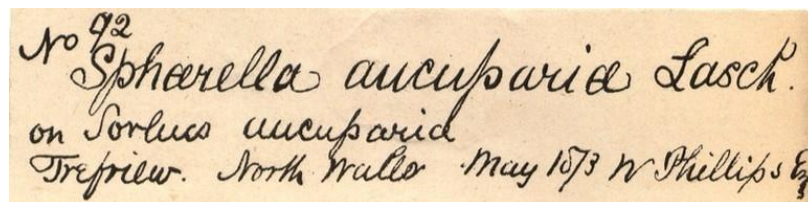 No 92
Sphærella aucupariæ Lasch.
on Sorbus aucuparia
Trefriew. North Wales May 1873 W Phillips Esq